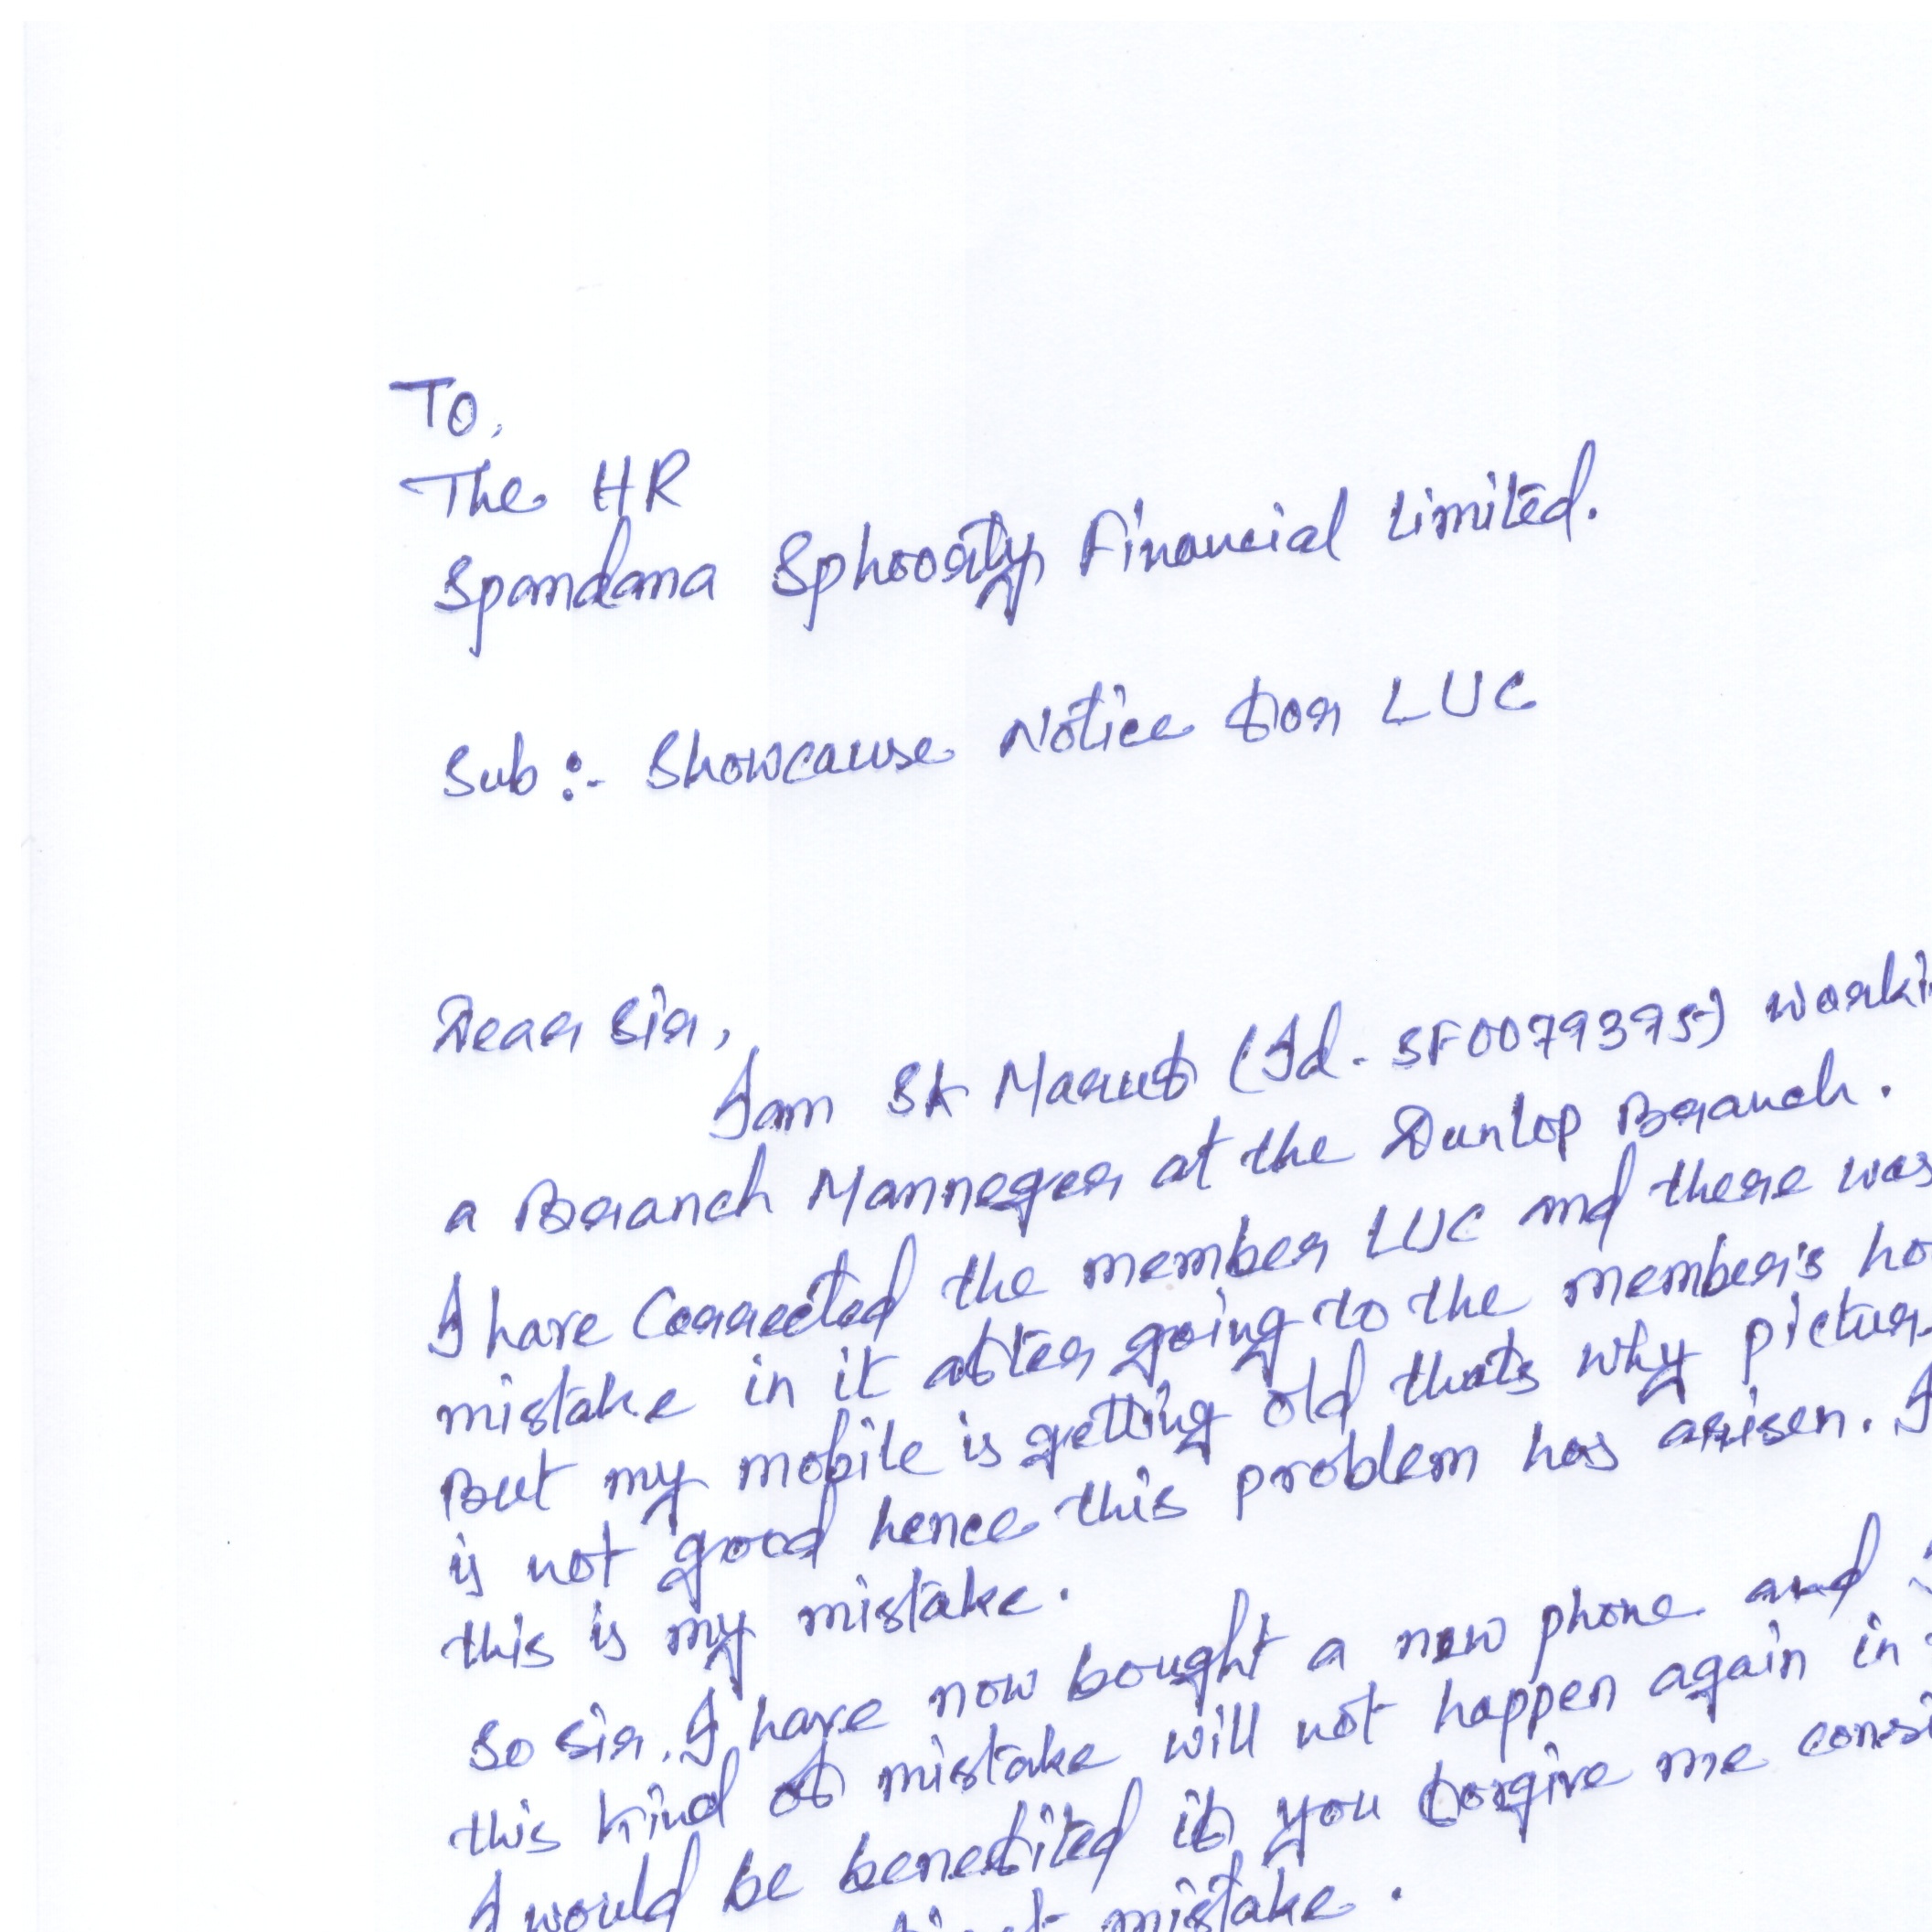 To,
The HR
Spandana Sphoorty Financial Limited.
Sub :- Showcause Notice for LUC
Dear Sir,
I am SK Maruf (Id - SF0079395) worki
a Branch Manneger at the Dunlop Branch.
I have Corrected the member LUC and there was
mistake in it after going to the member's ho
But my mobile is getting old thats why pictur
is not good hence this problem has arisen. I
this is my mistake.
So sir. I have now bought a new phone and
this kind of mistake will not happen again in
I would be benefited if you forgive me consi
mistake.